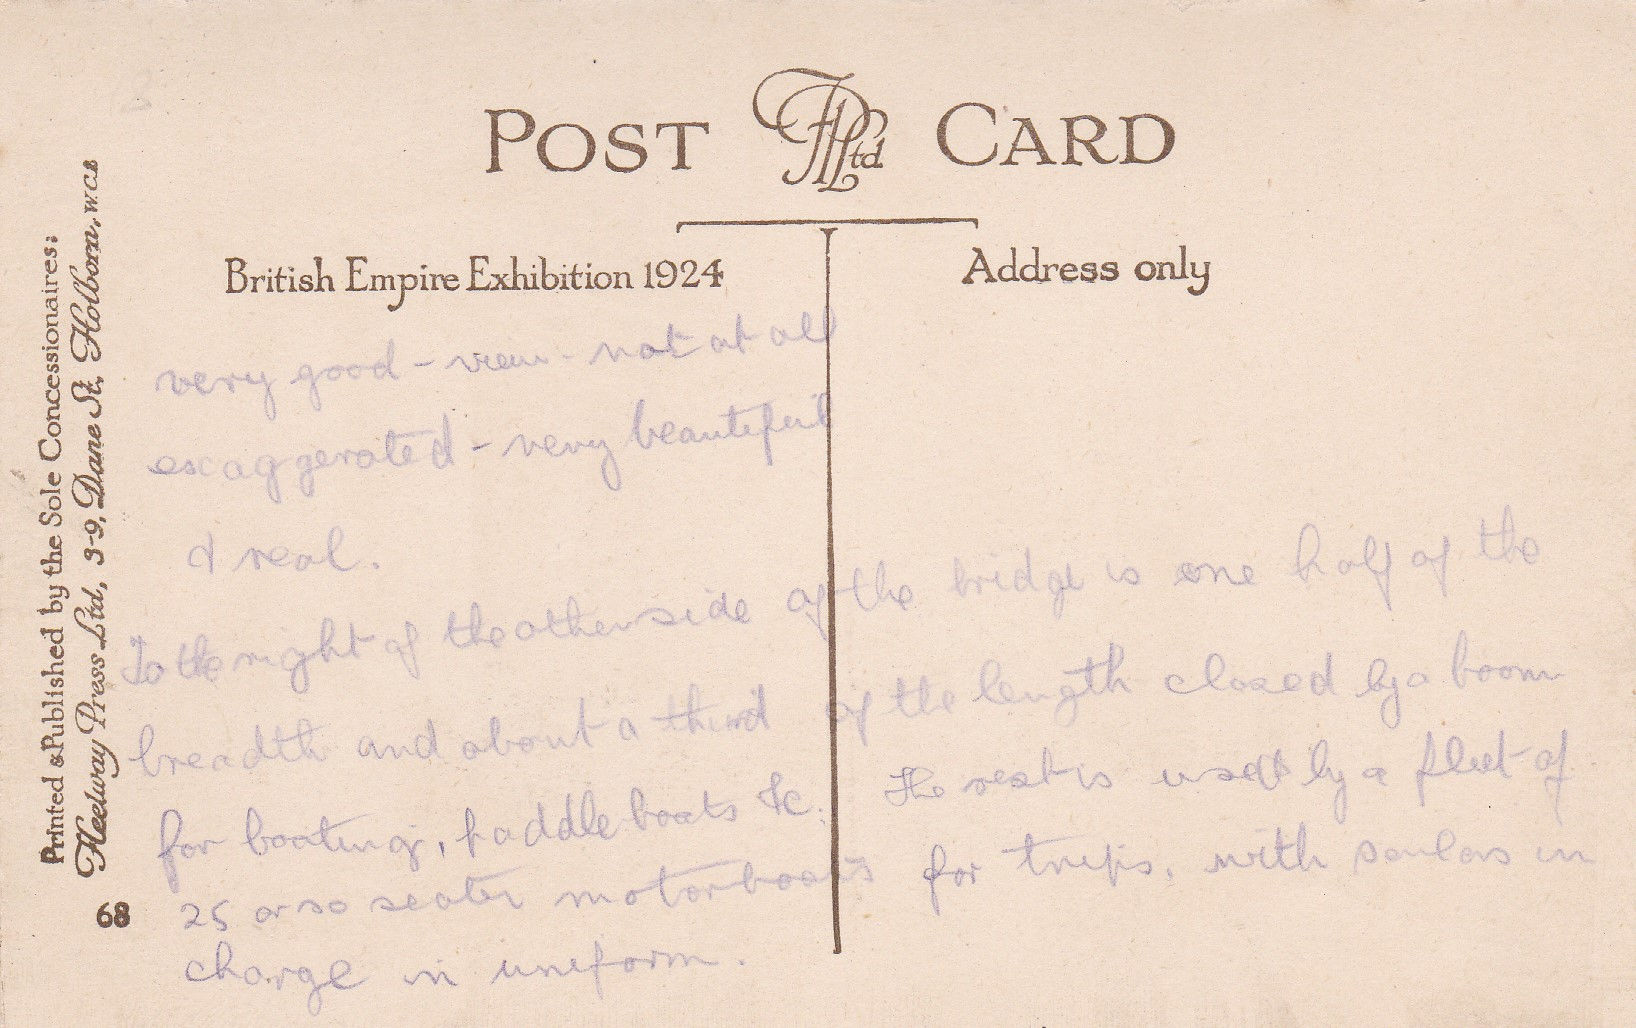 POST FPLtd CARD
British Empire Exhibition 1924
Address only
very good - view - not at all
exaggerated - very beautiful
& real.
To the right of the otherside of the bridge is one half of the
breadth and about a third of the length closed by a boom
for boating, paddleboats &c. The rest is used by a fleet of
25 or so seater motorboats for trips, with sailors in
charge in uniform.
Printed & Published by the Sole Concessionaires:
Fleetway Press Ltd, 3-9, Dane St. Holborn, W.C.1
68